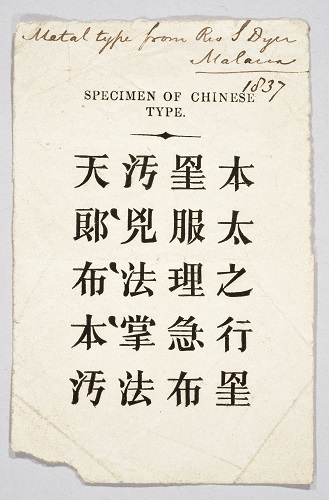 Metal type from Rev S Dyer
Malacca
1837
SPECIMEN OF CHINESE
TYPE.
本太之行
服理急布
汚兇法掌法
天郎布本汚